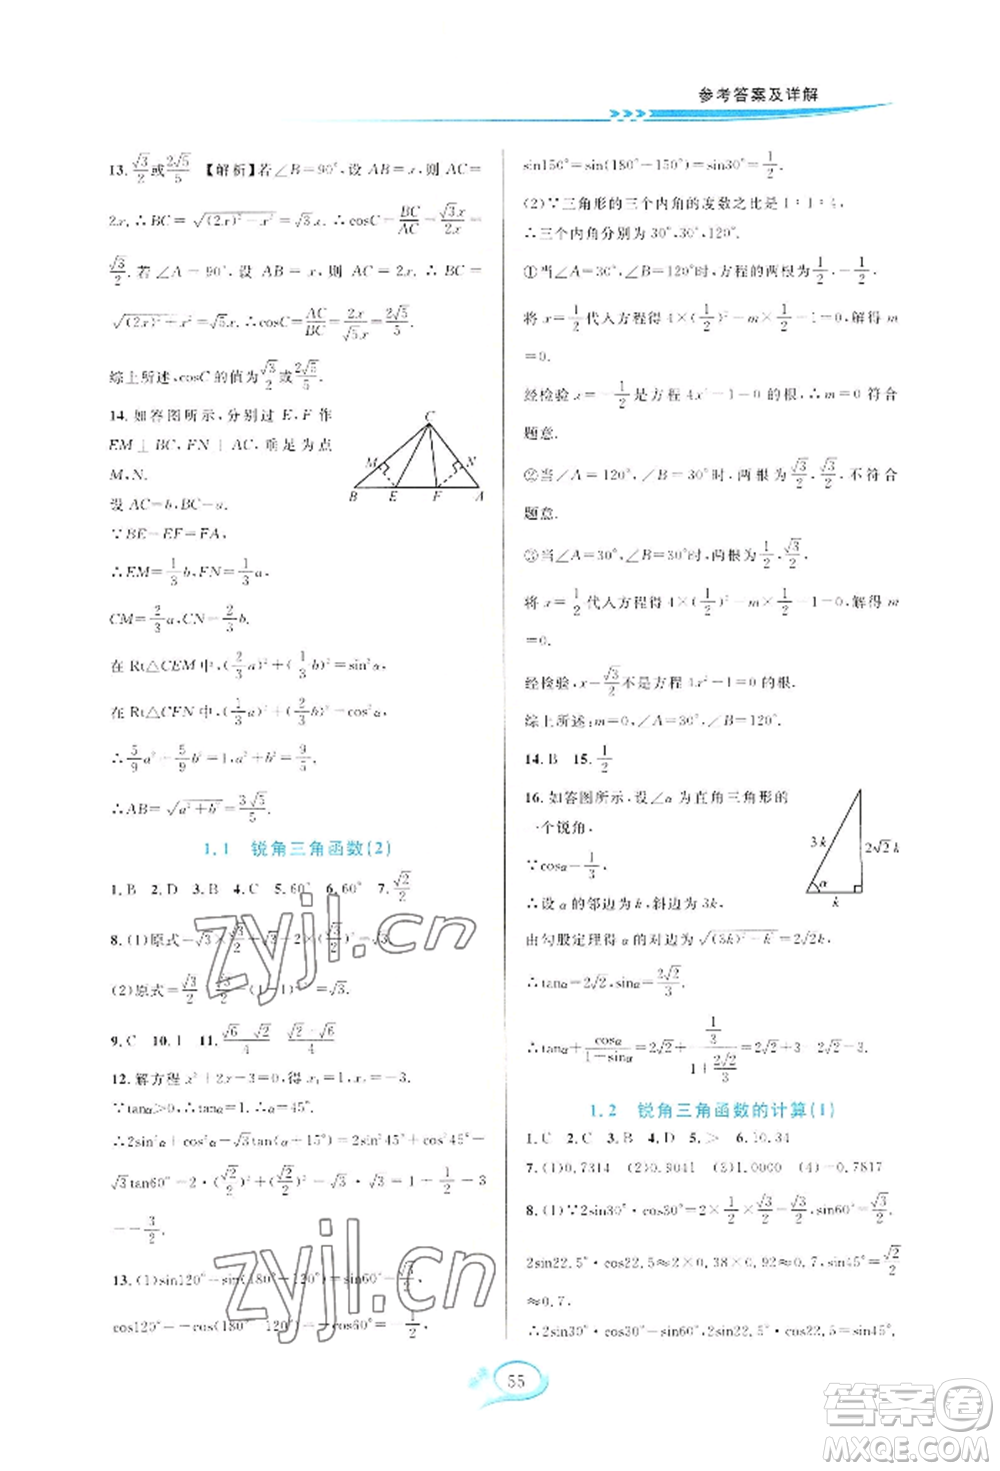 参考答案及详解
13. √3/2或2√5/5 【解析】若∠B=90°,设AB=x,则AC=
2x.∴BC=√((2x)²-x²)=√3x.∴cosC=BC/AC=√3x/2x=
√3/2.若∠A=90°,设AB=x,则AC=2x.∴BC=
√((2x)²+x²)=√5x.∴cosC=AC/BC=2x/√5x=2√5/5.
综上所述,cosC的值为√3/2或2√5/5.
14.如答图所示,分别过E,F作
EM⊥BC,FN⊥AC,垂足为点
M,N.
设AC=b,BC=a.
∵BE=EF=FA,
∴EM=1/3b,FN=1/3a,
CM=2/3a,CN=2/3b.
在Rt△CEM中,(2/3a)²+(1/3b)²=sin²α,
在Rt△CFN中,(1/3a)²+(2/3b)²=cos²α.
∴5/9a²+5/9b²=1.∴a²+b²=9/5.
∴AB=√(a²+b²)=3√5/5.
C
M N
B E F A
1.1 锐角三角函数(2)
1.B 2.D 3.B 4.C 5.60° 6.60° 7.√2/2
8.(1)原式=√3×√3/2
(2)原式=√3/2
9.C 10.1 11.(√6-√2)/4
12.解方程x²+2x-3=0,得x₁=1,x₂=-3.
∵tanα>0,∴tanα=1.∴α=45°.
∴2sin²α+cos²α-√3tan(α+15°)=2sin²45°+cos²45°-
√3tan60°=2·(√2/2)²+(√2/2)²-√3×√3=1+1/2-3
=-3/2.
13.(1)sin120°=sin(180°-120°)=sin60°=√3/2,
cos120°=-cos(180°-120°)=-cos60°=-1/2,
sin150°=sin(180°-150°)=sin30°=1/2.
(2)∵三角形的三个内角的度数之比是1:1:4,
∴三个内角分别为30°,30°,120°.
①当∠A=30°,∠B=120°时,方程的两根为1/2,-1/2.
将x=1/2代入方程得4×(1/2)²-m×1/2-1=0,解得
m=0.
经检验x=-1/2是方程4x²-1=0的根,∴m=0符合
题意.
②当∠A=120°,∠B=30°时,两根为√3/2,√3/2,不符合
题意.
③当∠A=30°,∠B=30°时,两根为1/2,√3/2.
将x=1/2代入方程得4×(1/2)²-m×1/2-1=0,解得
m=0.
经检验,x=√3/2不是方程4x²-1=0的根.
综上所述:m=0,∠A=30°,∠B=120°.
14.B 15.1/2
16.如答图所示,设∠α为直角三角形的
一个锐角.
∵cosα=1/3,
∴设α的邻边为k,斜边为3k,
由勾股定理得α的对边为√((3k)²-k²)=2√2k.
∴tanα=2√2,sinα=2√2/3.
∴tanα+cosα/(1-sinα)=2√2+
3k
2√2k
α
k
1.2 锐角三角函数的计算(1)
1.C 2.C 3.B 4.D 5.> 6.10.34
7.(1)0.7314 (2)0.9041 (3)1.0000 (4)-0.7817
8.(1)∵2sin30°·cos30°=2×1/2×√3/2=√3/2,sin60°=√3/2.
2sin22.5°·cos22.5°≈2×0.38×0.92≈0.7,sin45°=√2/2
≈0.7,
∴2sin30°·cos30°=sin60°,2sin22.5°·cos22.5°=sin45°.
55
zyjl.cn
zyjl.cn
答案圈
MXQE.COM